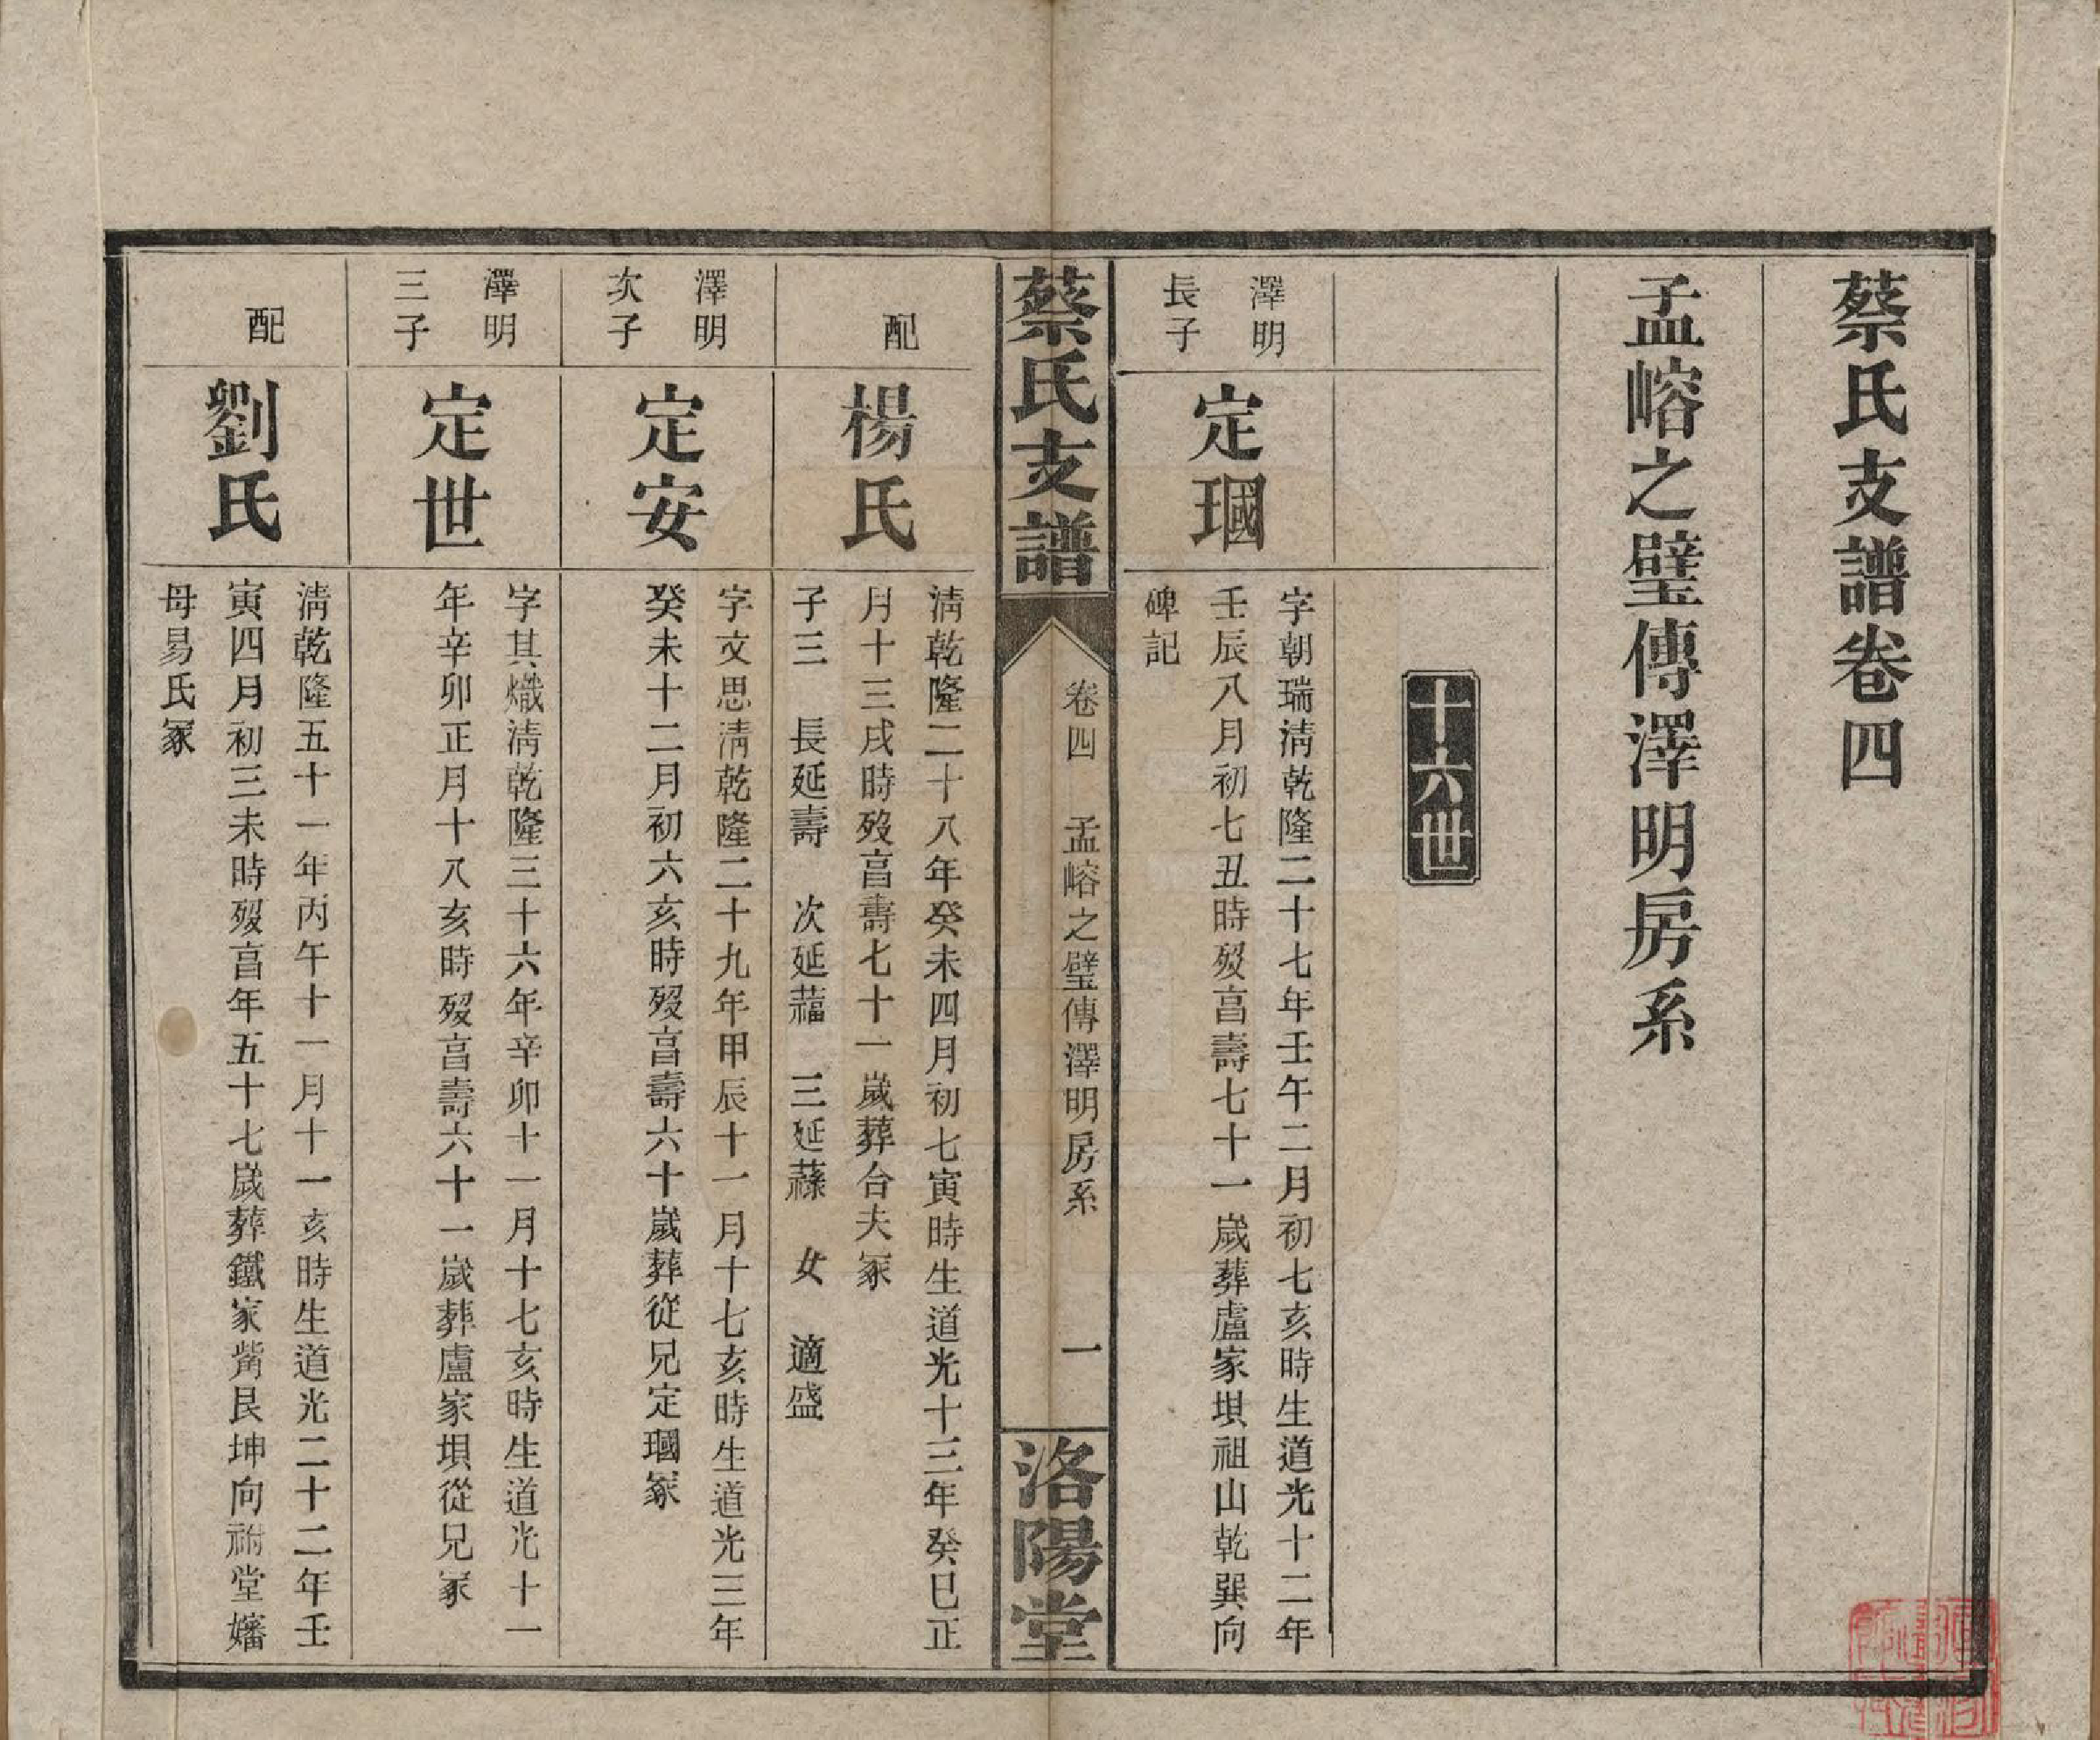 蔡氏支譜卷四
孟嵱之璧傳澤明房系
十六世
澤明
長子
定瑻
字朝瑞淸乾隆二十七年壬午二月初七亥時生道光十二年
壬辰八月初七丑時歿亯壽七十一歲葬盧家垻祖山乾巽向
碑記
蔡氏支譜
卷四 孟嵱之璧傳澤明房系 一
洛陽堂
配
楊氏
淸乾隆二十八年癸未四月初七寅時生道光十三年癸巳正
月十三戌時歿亯壽七十一歲葬台夫冢
子三 長延壽 次延蕌 三延蕬 女 適盛
澤明
次子
定安
字文思淸乾隆二十九年甲辰十一月十七亥時生道光三年
癸未十二月初六亥時歿亯壽六十歲葬從兄定瑻冢
澤明
三子
定世
字其熾淸乾隆三十六年辛卯十一月十七亥時生道光十一
年辛卯正月十八亥時歿亯壽六十一歲葬盧家垻從兄冢
配
劉氏
淸乾隆五十一年丙午十一月十一亥時生道光二十二年壬
寅四月初三未時歿亯年五十七歲葬鐵家觜艮坤向祔堂嬸
母易氏冢